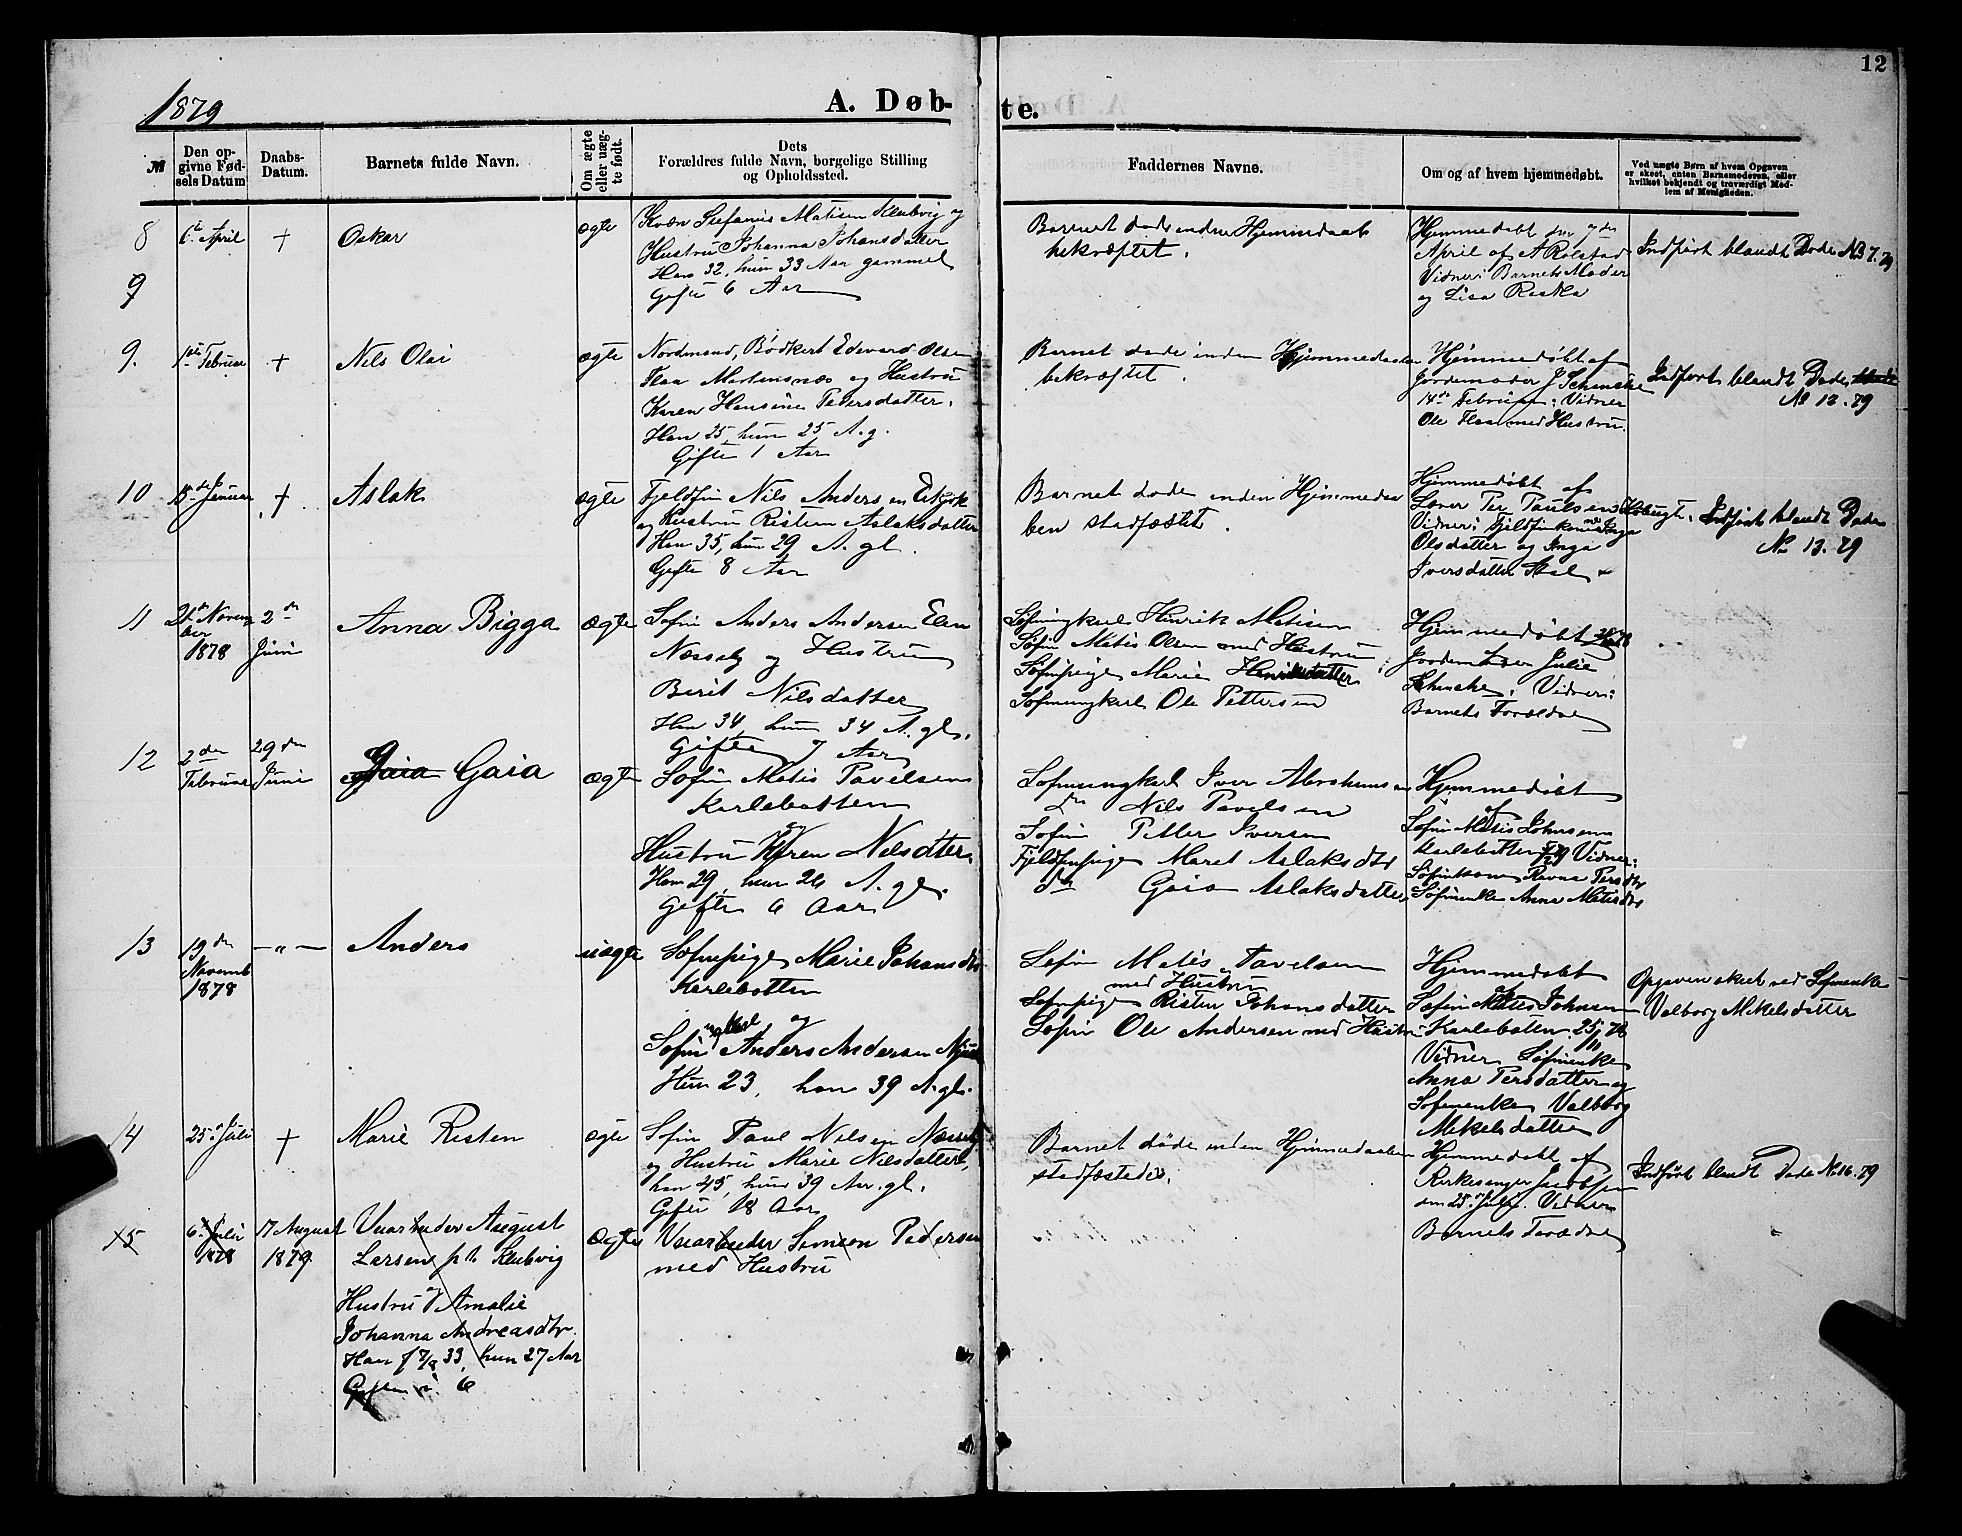 12
1879
A. Døb-
te.
№
Den op-
givne Fød-
sels Datum
Daabs-
Datum.
Barnets fulde Navn.
Om ægte
eller uæg-
te født.
Dets
Forældres fulde Navn, borgelige Stilling
og Opholdssted.
Faddernes Navne.
Om og af hvem hjemmedøbt.
Ved uægte Børn af hvem Opgaven
er skeet, enten Barnemoderen, eller
hvilket bekjendt og troværdigt Med-
lem af Menigheden.
8
6te April
+
Oskar
ægte
Kvæn Stefanus Matisen Klubvig og
Hustru Johanna Johansdatter
Han 32, hun 33 Aar gammel
Gifte 6 Aar
Barnet døde inden Hjemmedaab
bekræftet.
Hjemmedøbt den 7de
April af A Rolstad
Vidner: Barnets Moder
og Lisa Raska
Indført blandt Døde N3 7. 79
9
9.
1ste Februar
+
Nils Olai
ægte
Nordmand, Bødkert Edevard Olsen
Flaa Mortensnæs og Hustru
Karen Hansine Pedersdatter.
Han 25, hun 25 A. g.
Gifte 1 Aar
Barnet døde inden Hjemmedaaben
bekræftet.
Hjemmedøbt af
Jordemoder J Schanche
14de Februar. Vidner
Ole Flaa med Hustru.
Indført blandt Døde
№ 12. 79
10
Januar
+
Aslak
ægte
Fjeldfin Nils Andersen
og Hustru Risten Aslaksdatter
Han 35, hun 29 A. gl.
Gifte 8 Aar
Barnet døde inden Hjemmedaa
ben stadfæstet.
Hjemmedøbt af
Lærer Per Paulsen
Vidner: Fjeldfinkone Inga
Olsdatter og Inga
Iversdatter
Indført blandt Døde
№ 13. 79
11
21de Novem
ber
1878
2den
Juni
Anna Bigga
ægte
Søfin Anders Andersen Elen
Næsseby og Hustru
Berit Nilsdatter
Han 34, hun 34 A. gl.
Gifte 7 Aar
Søfinungkarl Henrik Matisen
Søfin Matis Olsen med Hustru
Søfinpige Marie Henriksdatter
Søfinungkarl Ole Pettersen
Hjemmedøbt
Jordemoder Julie
Schanche. Vidner:
Barnets Forældre
12
2den
Februar
29den
Juni
Gaia
ægte
Søfin Matis Pavelsen
Karlebotten
og
Hustru Karen Nilsdtter
Han 29, hun 26 A. gl.
Gifte 6 Aar
Søfinungkarl Iver Abrahamsen
do Nils Pavelsen
Søfin Petter Iversen
Fjeldfinpige Maret Aslaksdtr
do Gaia Aslaksdatter
Hjemmedøbt
af
Søfin Matis Johnsen
Karlebotten Vidner:
Søfinkone Ravna Persdtr
Søfinenke Anna Matisdtr
13
19den
Novemb
1878
— " —
Anders
uægte
Søfinpige Marie Johansdtr
Karlebotten
og
Søfinungkarl Anders Andersen
Hun 23, han 39 A. gl.
Søfin Matis Pavelsen
med Hustru
Søfinpige Risten Johansdatter
Søfin Ole Andersen med Hustru
Hjemmedøbt
af
Søfin Matis Johnsen
Karlebotten 25/11 78
Vidner Søfinenke
Anna Persdatter og
Søfinenke Valborg
Mikelsdatter
Opgaven skeet ved Søfinenke
Valborg Mikelsdatter
14
25de Juli
+
Marie Risten
ægte
Søfin Paul Nilsen Næsseby
og Hustru Marie Nilsdatter,
han 45, hun 39 Aar. gl.
Gifte 18 Aar
Barnet døde inden Hjemmedaaben
stadfæstedes.
Hjemmedøbt af
Kirkesanger
den 25de Juli. Vidner
Barnets Forældre
Indført blandt Døde N. 16. 79
15
6te Juli
1878
17 August
1879
Varbuder August
Larsen p.t. Klubvig
og
Hustru Amalie
Johanna Andreasdtr.
Han 33, hun 27 Aar
Gifte i 6
Ægte
Simeon Pedersen
med Hustru